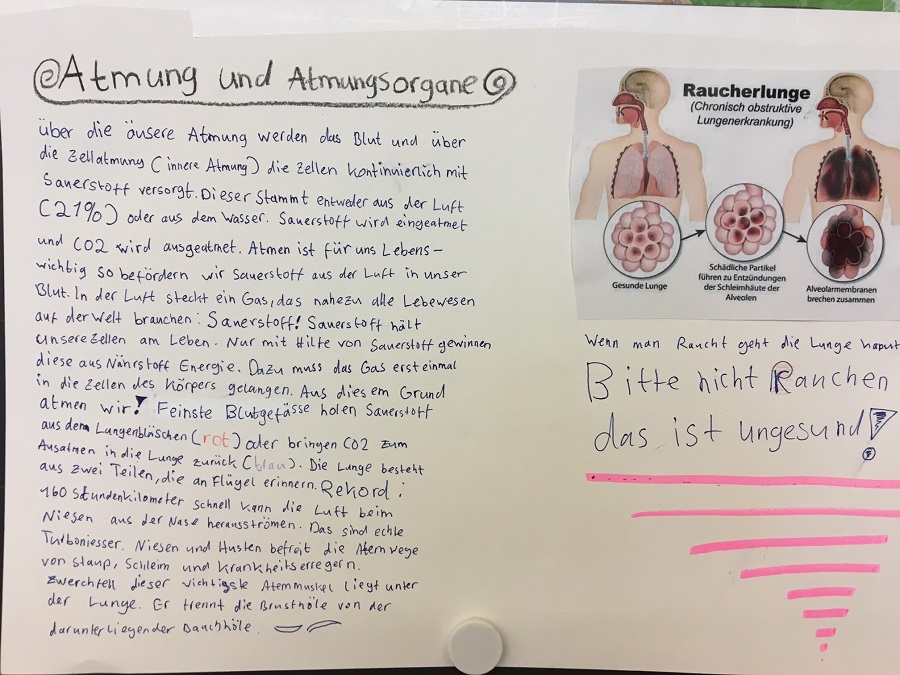 Atmung und Atmungsorgane
über die äusere Atmung werden das Blut und über
die Zellatmung (innere Atmung) die Zellen kontinuierlich mit
Sauerstoff versorgt. Dieser Stammt entweder aus der Luft
(21%) oder aus dem Wasser. Sauerstoff wird eingeatmet
und CO2 wird ausgeatmet. Atmen ist für uns Lebens-
wichtig so befördern wir Sauerstoff aus der Luft in unser
Blut. In der Luft steckt ein Gas, das nahezu alle Lebewesen
auf der Welt brauchen: Sauerstoff! Sauerstoff hält
unsere Zellen am Leben. Nur mit Hilfe von Sauerstoff gewinnen
diese aus Nährstoff Energie. Dazu muss das Gas erst einmal
in die Zellen des Körpers gelangen. Aus diesem Grund
atmen wir! Feinste Blutgefässe holen Sauerstoff
aus dem Lungenbläschen (rot) oder bringen CO2 zum
Ausatmen in die Lunge zurück (blau). Die Lunge besteht
aus zwei Teilen, die an Flügel erinnern. Rekord:
160 Stundenkilometer schnell kann die Luft beim
Niesen aus der Nase herausströmen. Das sind echte
Turboniesser. Niesen und Husten befreit die Atemwege
von staup, Schleim und Krankheitserregern.
Zwerchfell dieser wichtigste Atemmuskel liegt unter
der Lunge. Er trennt die Brusthöle von der
darunterliegender Bauchhöle.
Raucherlunge
(Chronisch obstruktive
Lungenerkrankung)
Gesunde Lunge
Schädliche Partikel
führen zu Entzündungen
der Schleimhäute der
Alveolen
Alveolarmembranen
brechen zusammen
Wenn man Raucht geht die Lunge kaputt
Bitte nicht Rauchen
das ist ungesund!